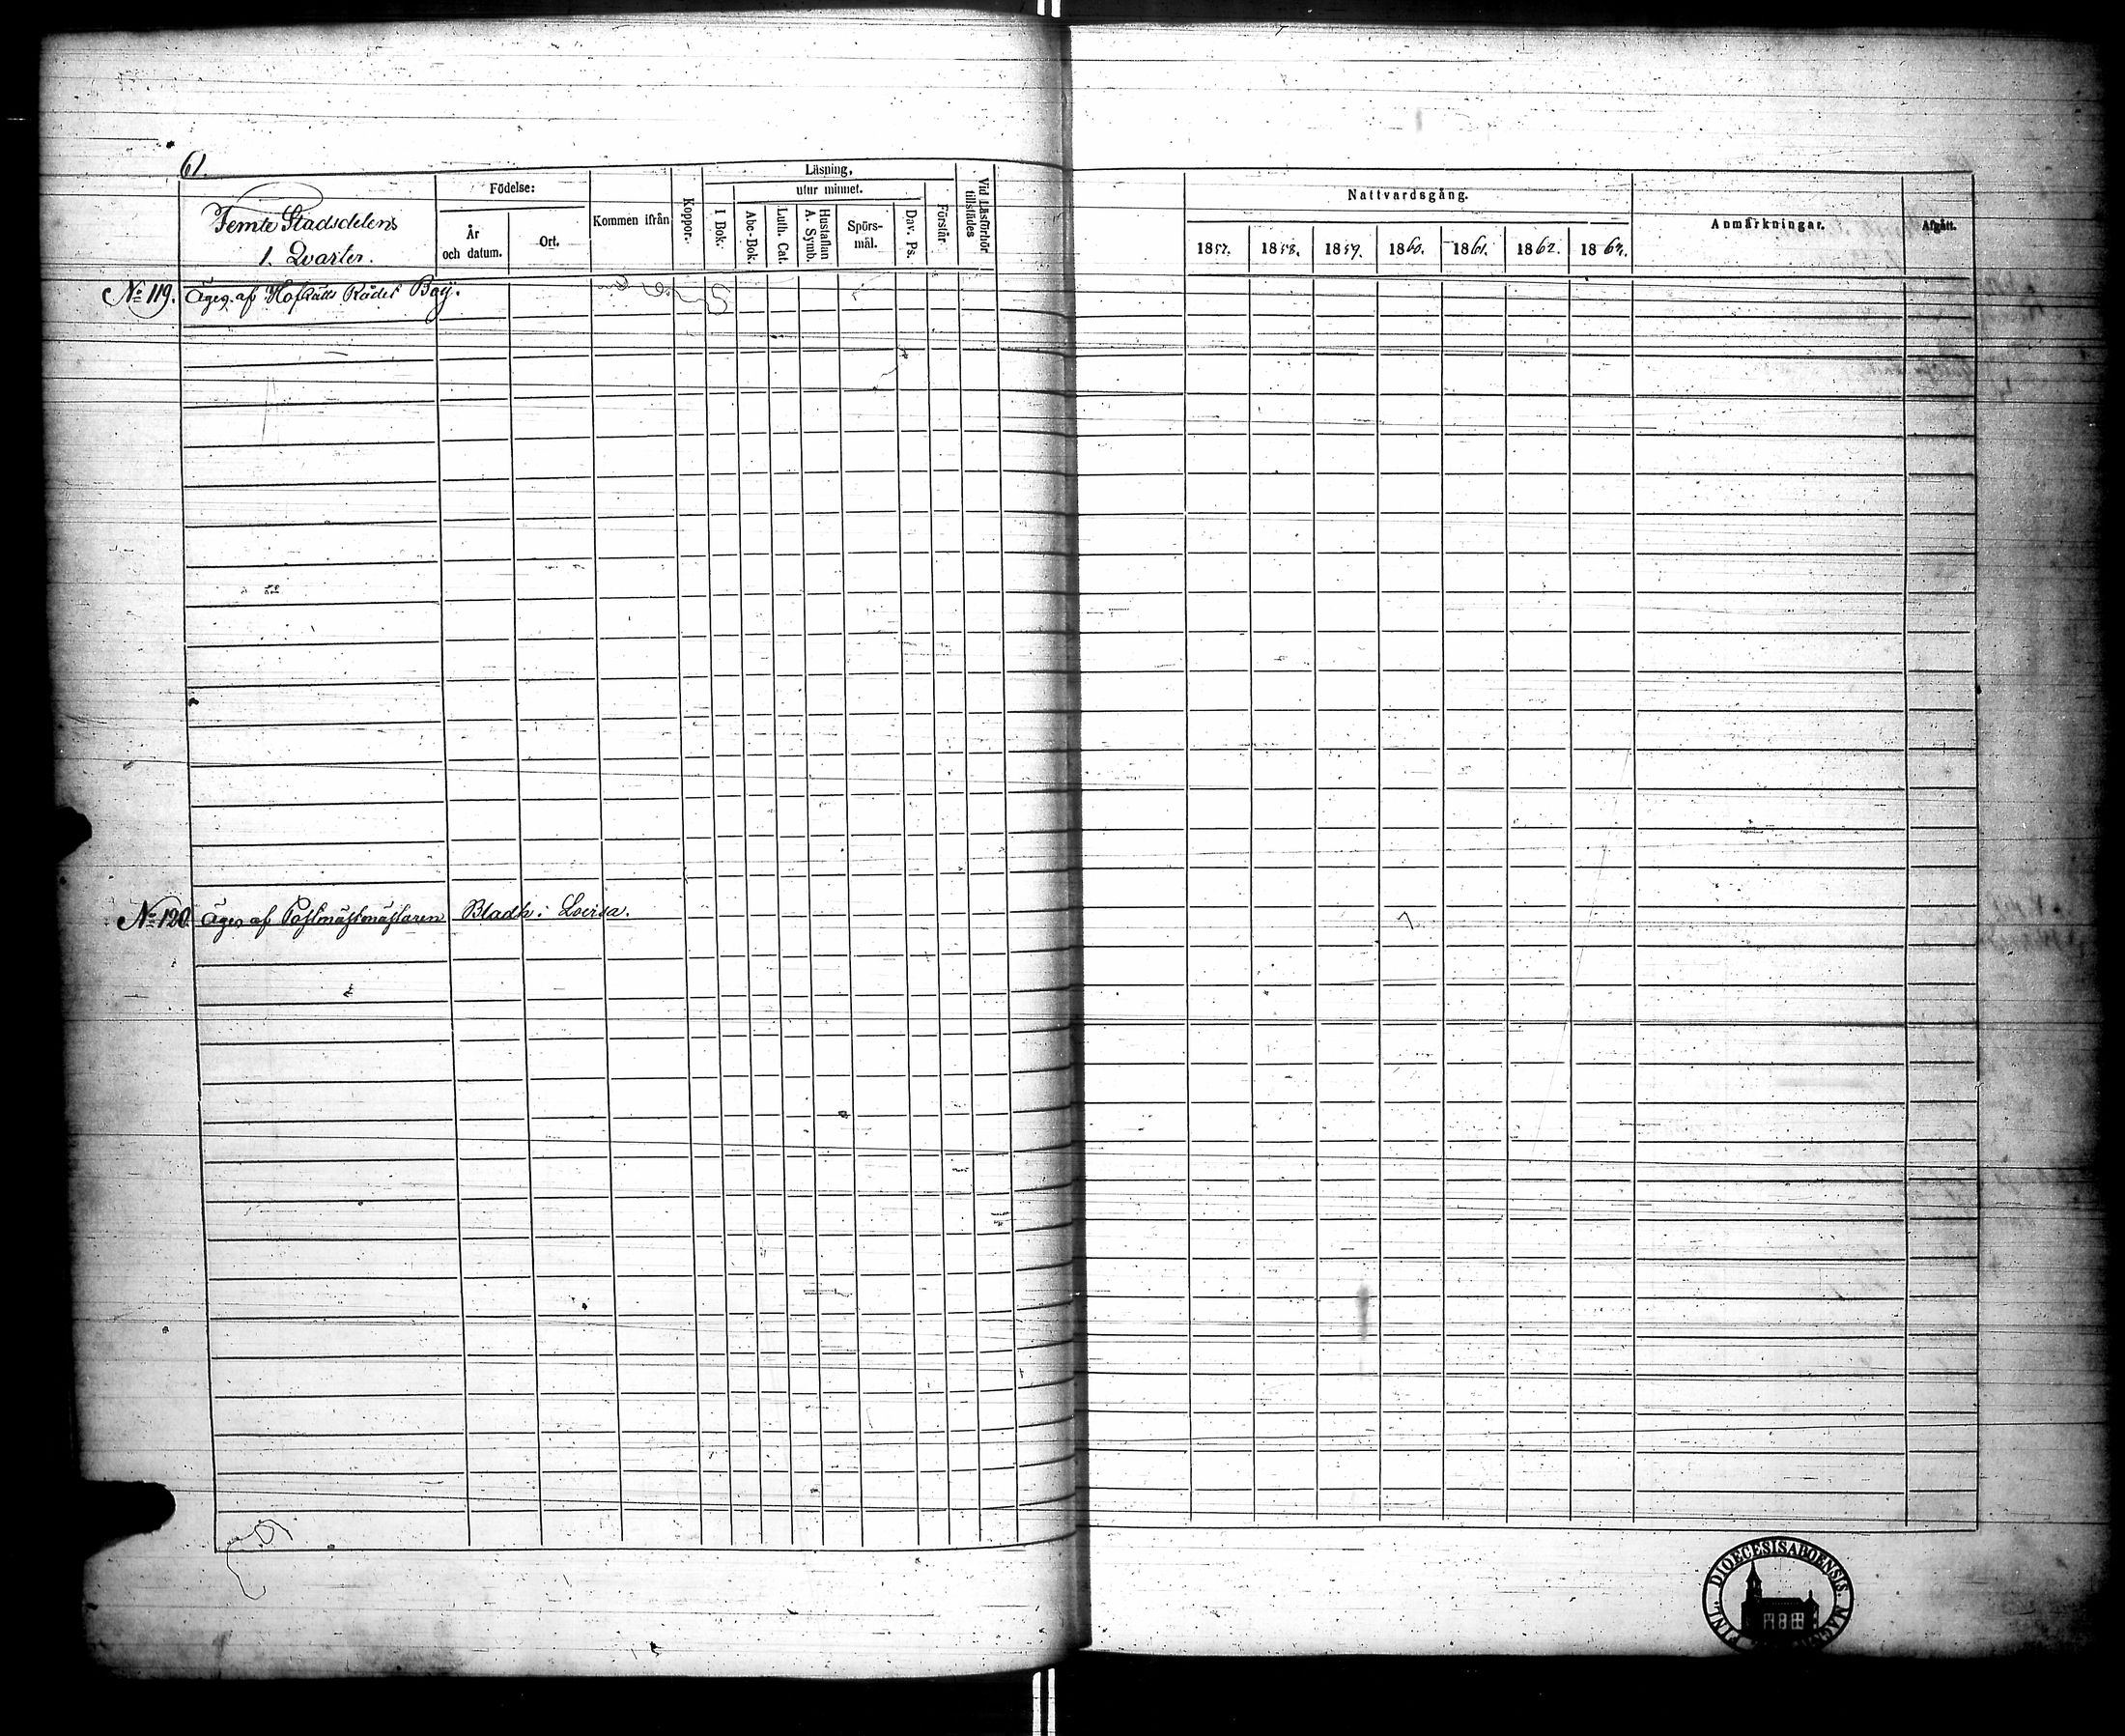 61.
Femte Stadsdelens
1. Qvarter.
Födelse:
År
och datum.
Ort.
Kommen ifrån
Koppor.
Läsning,
utur minnet.
I Bok.
Abc-Bok.
Luth. Cat.
Hustaflan
A. Symb.
Spörs-
mål.
Dav. Ps.
Förstår
Vid Läsförhör
tillstädes
Nattvardsgång.
1857. 1858. 1859. 1860. 1861. 1862. 1863.
Anmärkningar.
Afgått.
No 119. Äges af HofRätts Rådet
No 120. Äges af Postmästmästaren Bladh i Lovisa.
DIOECESIS ABOENSIS.